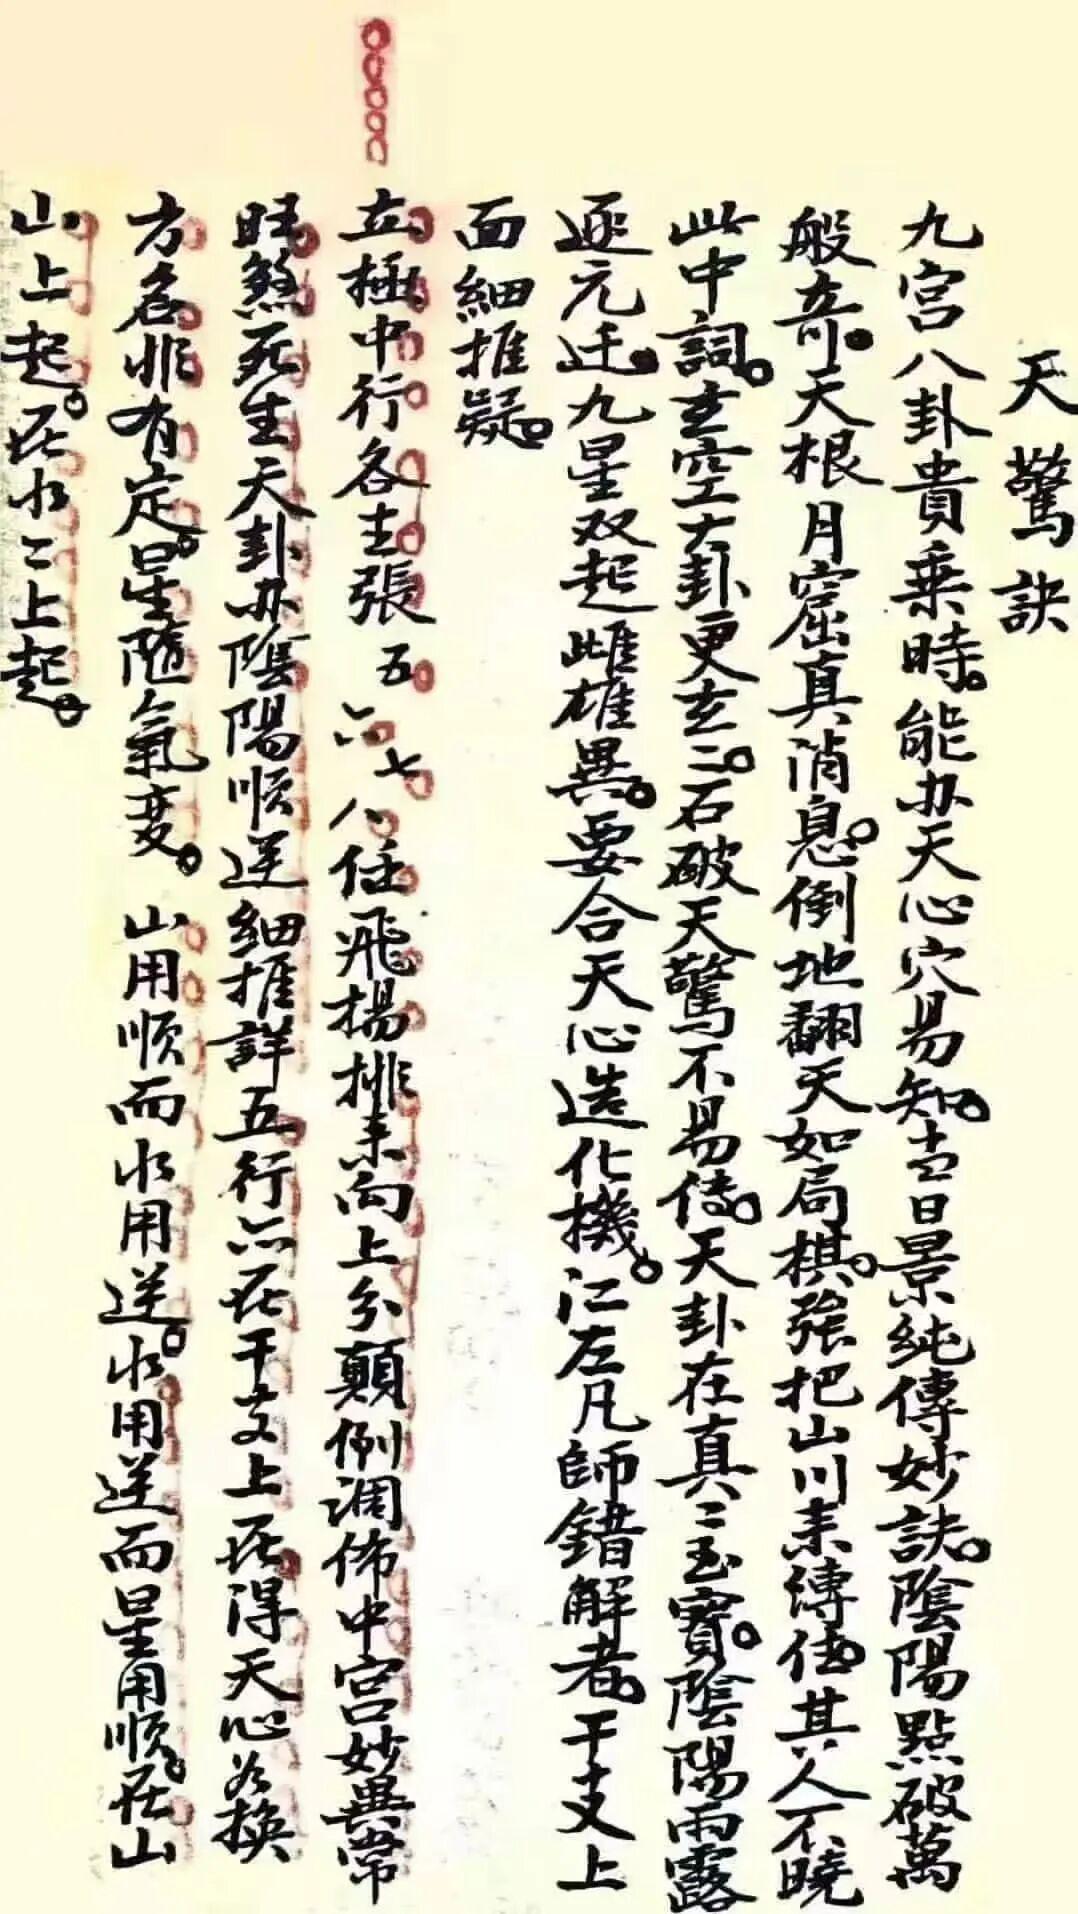 天驚訣
九宮八卦貴乗時。能办天心穴易知。昔日景純傳妙訣。陰陽點破萬
般奇。天根月窟真消息。倒地翻天如局棋。強把山川来傳伝其人不曉
此中詞。玄空大卦更玄〻。石破天驚不易传。天卦在真〻玉寶。陰陽雨露
逐元迁。九星双起雌雄異。要合天心造化機。江左凡師錯解者。干支上
面細推疑。
立極中行各主張五六七八任飛揚排来向上分顛倒調佈中宮妙異常
旺煞死生天卦办陰陽順逆細推詳五行六在干支上在得天心為換
方名非有定。星隨氣变。山用順而水用逆。水用逆而星用順。在山
山上起。在水〻上起。